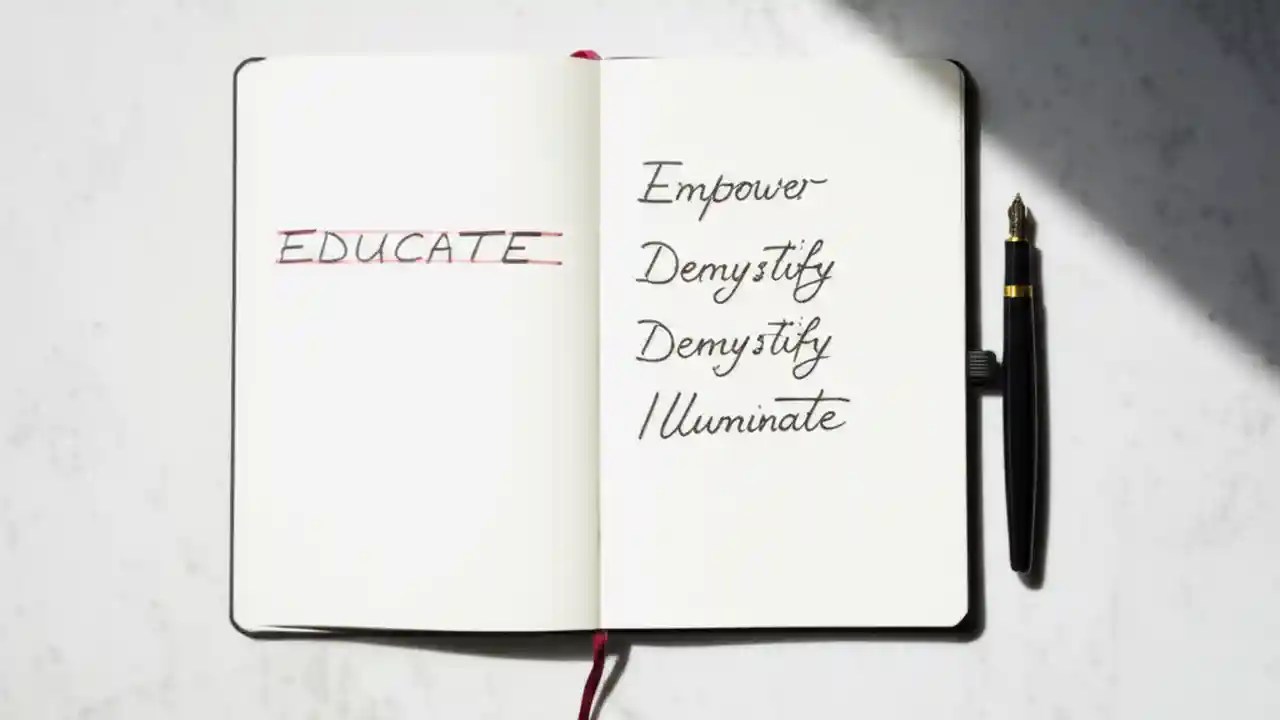 EDUCATE
Empower
Demystify
Demystify
Illuminate